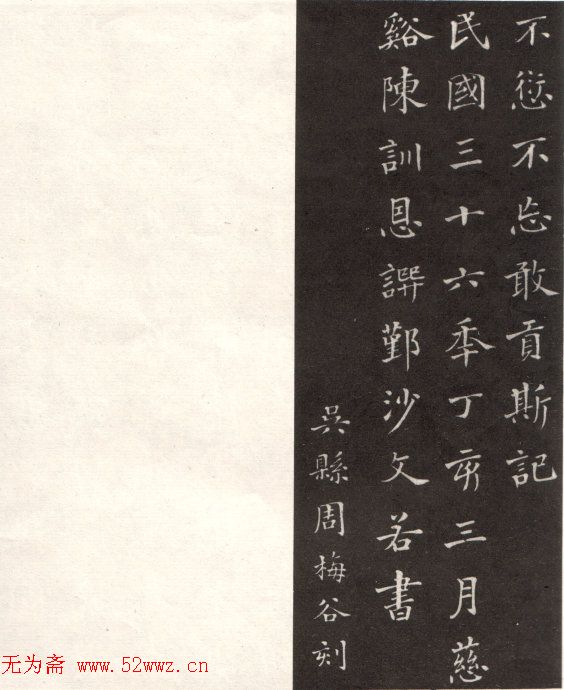 不愆不忘敢貢斯記
民國三十六季丁亥三月慈
谿陳訓恩譔鄞沙文若書
吳縣周梅谷刻
无为斋 www.52wwz.cn